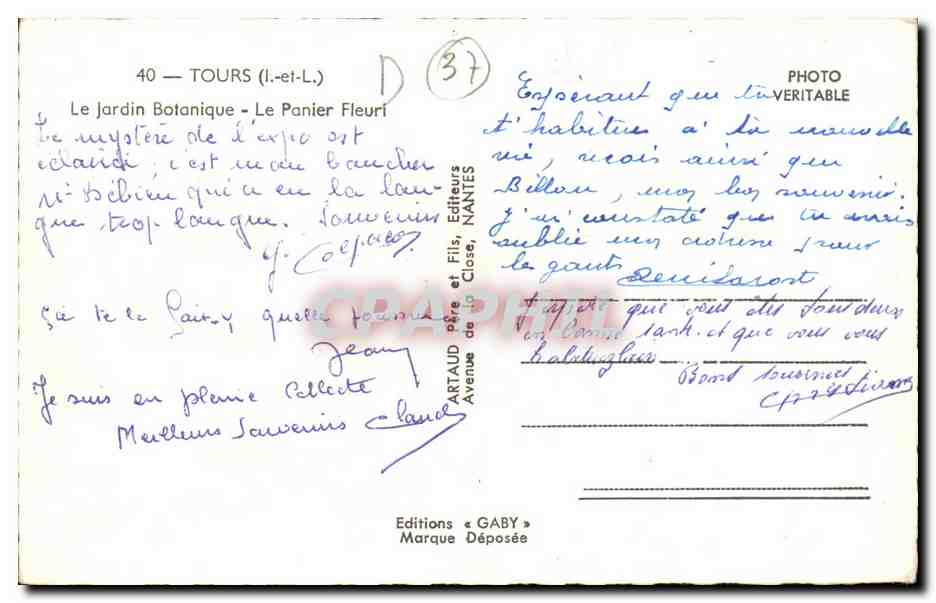 40 — TOURS (I.-et-L.)
Le Jardin Botanique - Le Panier Fleuri
D 37
PHOTO
VERITABLE
Le mystère de l'expo est
eclairci, c'est mon boucher
qui a eu la lan-
gue trop longue. Souvenirs
quelle
Jean
Je suis en pleine Collecte
Meilleurs Souvenirs Claude
ARTAUD Père et Fils, Editeurs
Avenue de la Close, NANTES
CPAPHIL
Espérant que tu
t'habitues à ta nouvelle
vie, reçois ainsi que
mes bons souvenirs.
J'ai constaté que tu avais
oublié mon adresse pour
les gants
J'espère que vous êtes tous deux
en bonne santé et que vous vous
Bons souvenirs
Editions « GABY »
Marque Déposée